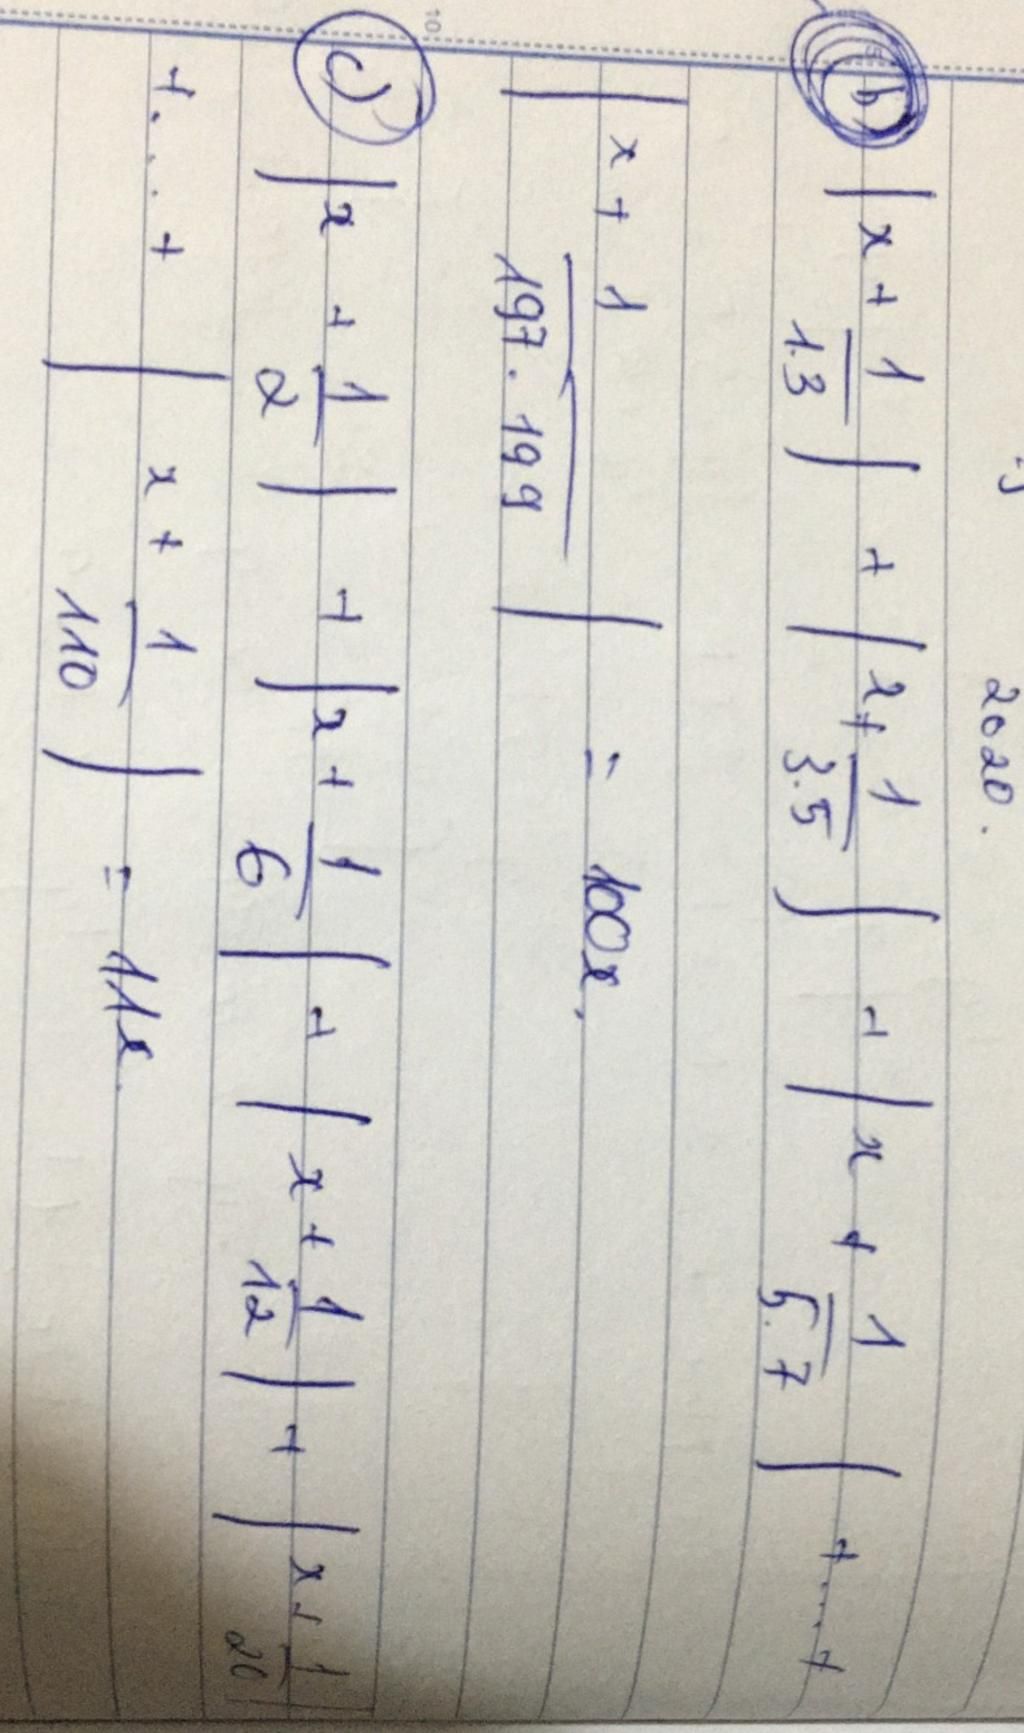 2020.
b) |x + 1/1.3| + |x + 1/3.5| + |x + 1/5.7| + .... +
|x + 1/197.199| = 100x,
c) |x + 1/2| + |x + 1/6| + |x + 1/12| + |x + 1/20|
+ .... + |x + 1/110| = 11x.